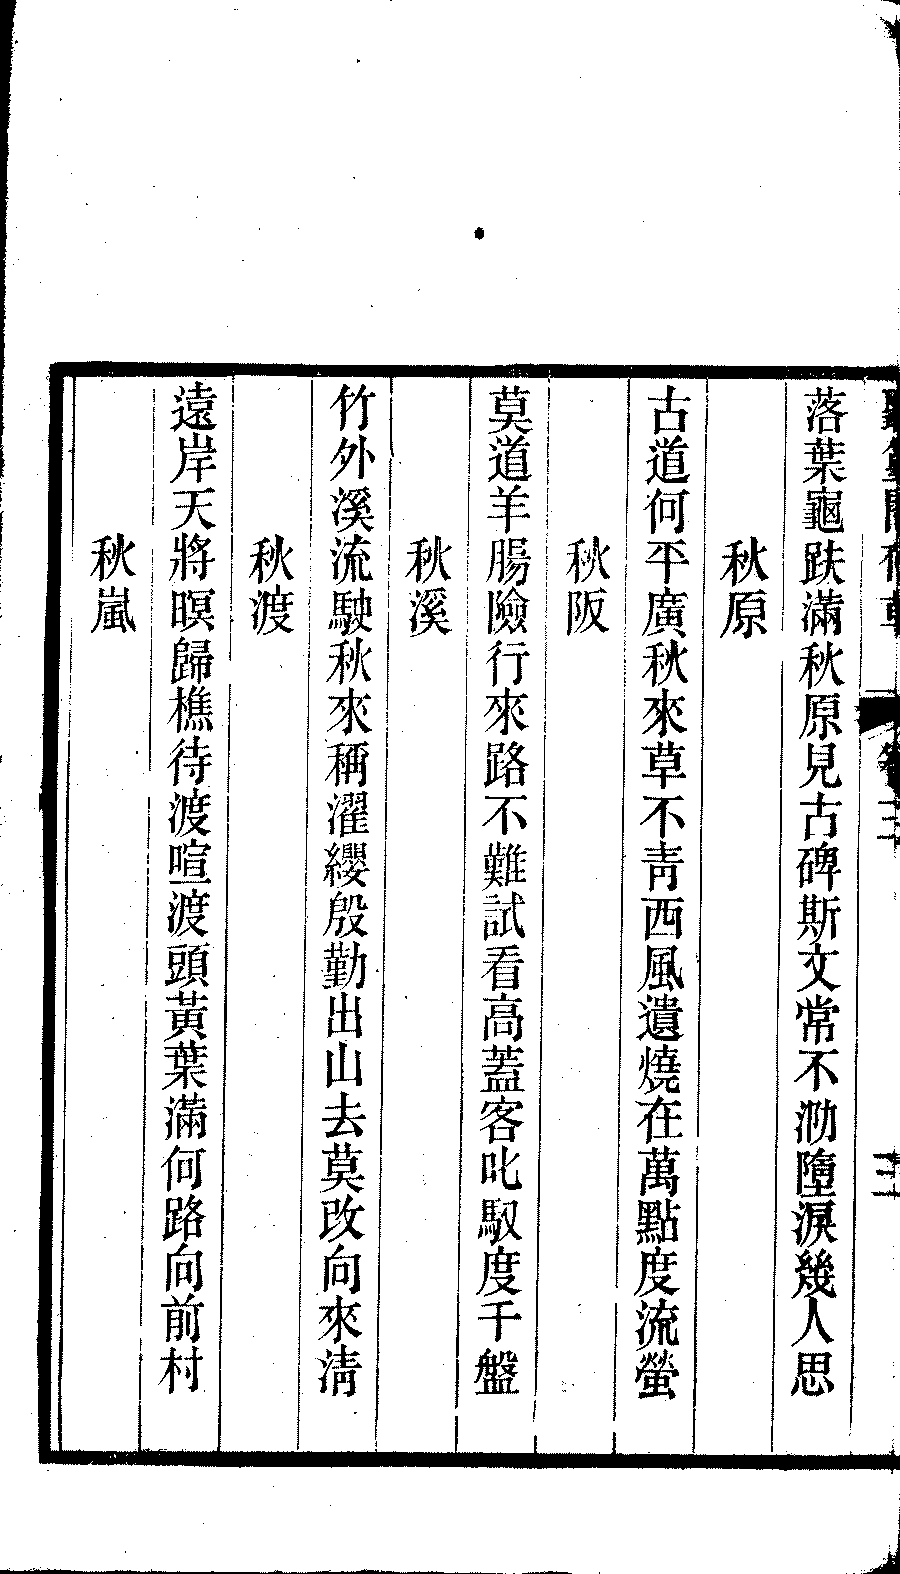 落葉龜趺滿秋原見古碑斯文常不泐墮淚幾人思
秋原
古道何平廣秋來草不靑西風遺燒在萬點度流螢
秋阪
莫道羊腸險行來路不難試看高蓋客叱馭度千盤
秋溪
竹外溪流駛秋來稱濯纓殷勤出山去莫改向來淸
秋渡
遠岸天將暝歸樵待渡喧渡頭黃葉滿何路向前村
秋嵐